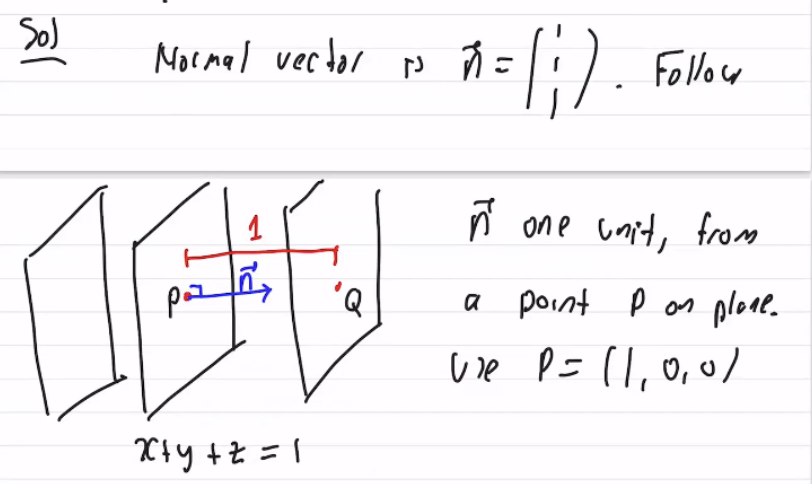 Sol
Normal vector is n⃗ = (1 1 1). Follow
n⃗ one unit, from
a point P on plane.
Use P = (1, 0, 0)
1
n⃗
P
Q
x+y+z=1